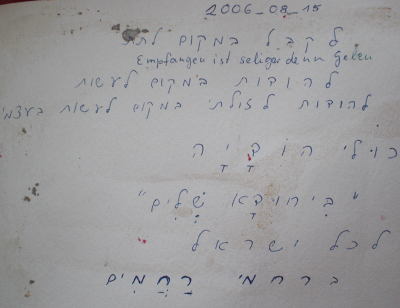 2006_08_15
לקבל במקום לתת
Empfangen ist seliger denn Geben
להודות במקום לעשות
להודות לזולתי במקום לעשות בעצמי
כולי הודיה
"ביחודא שלים"
לכל ישראל
ברחמי רחמים